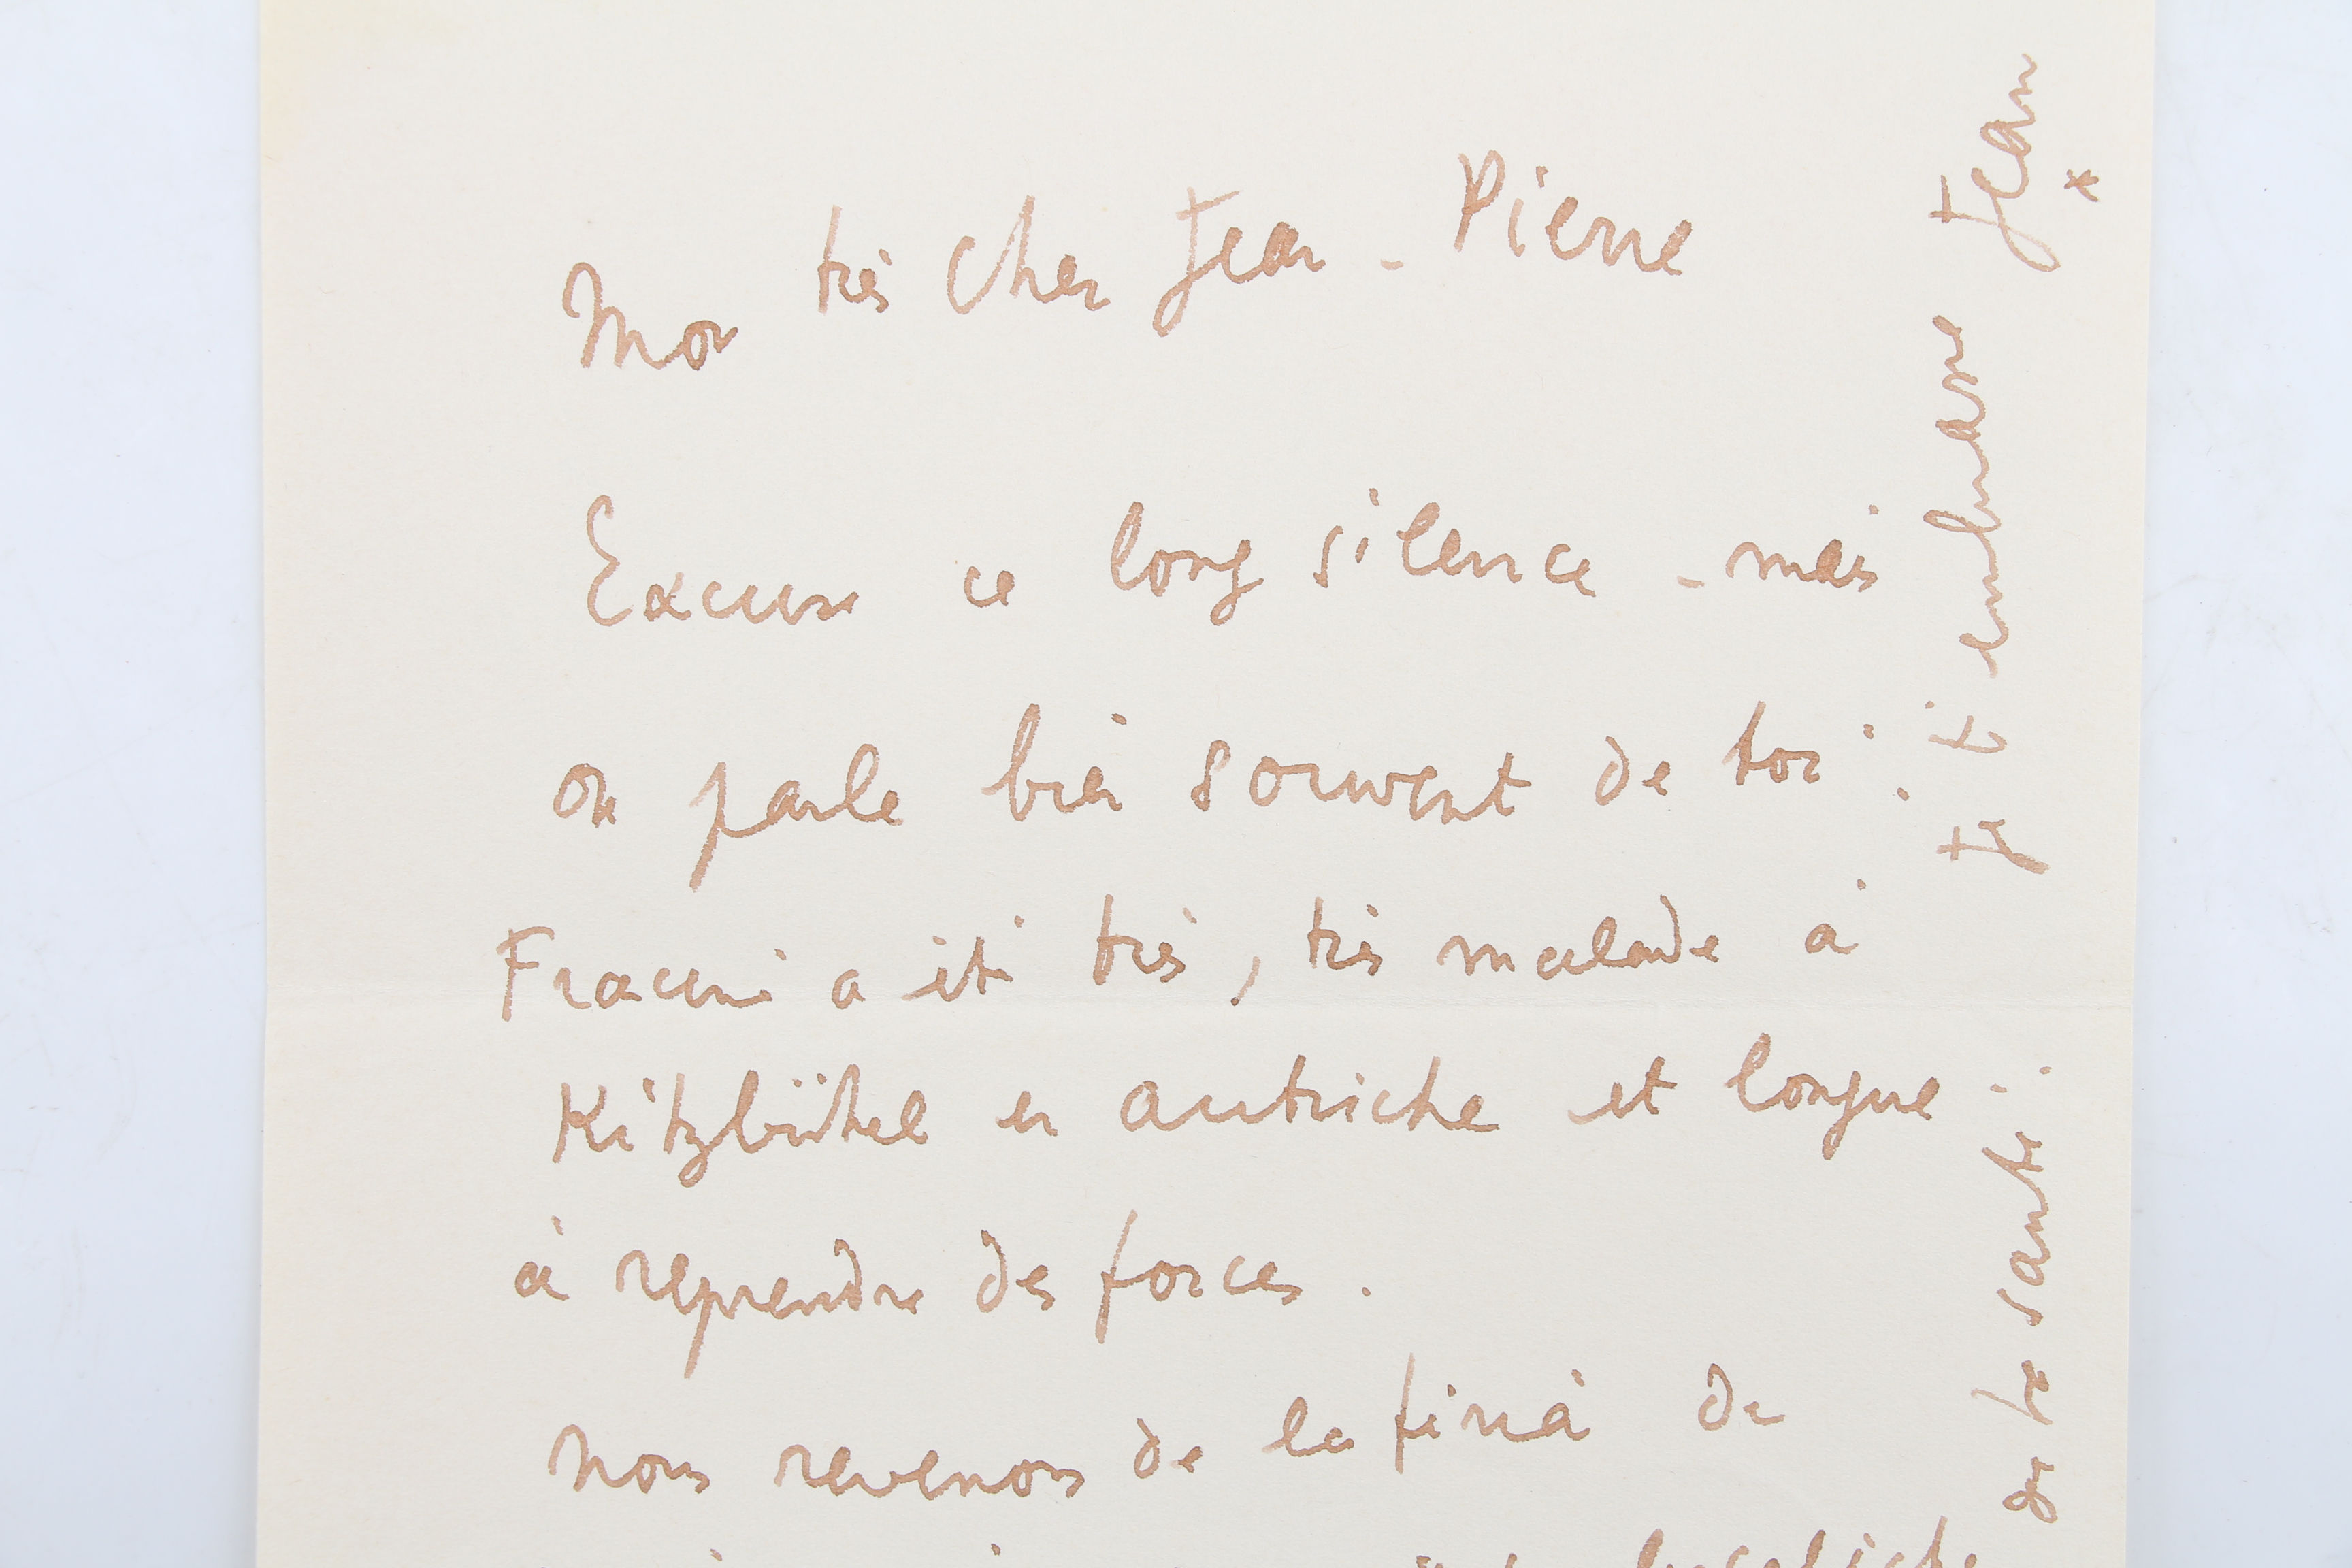 Mon très cher Jean-Pierre
Excuse ce long silence - mais
on parle bien souvent de toi.
Francine a été très, très malade à
Kitzbühel en autriche et longue
à reprendre des forces.
Nous revenons de la feria de
Je t'embrasse Jean
de ta santé..